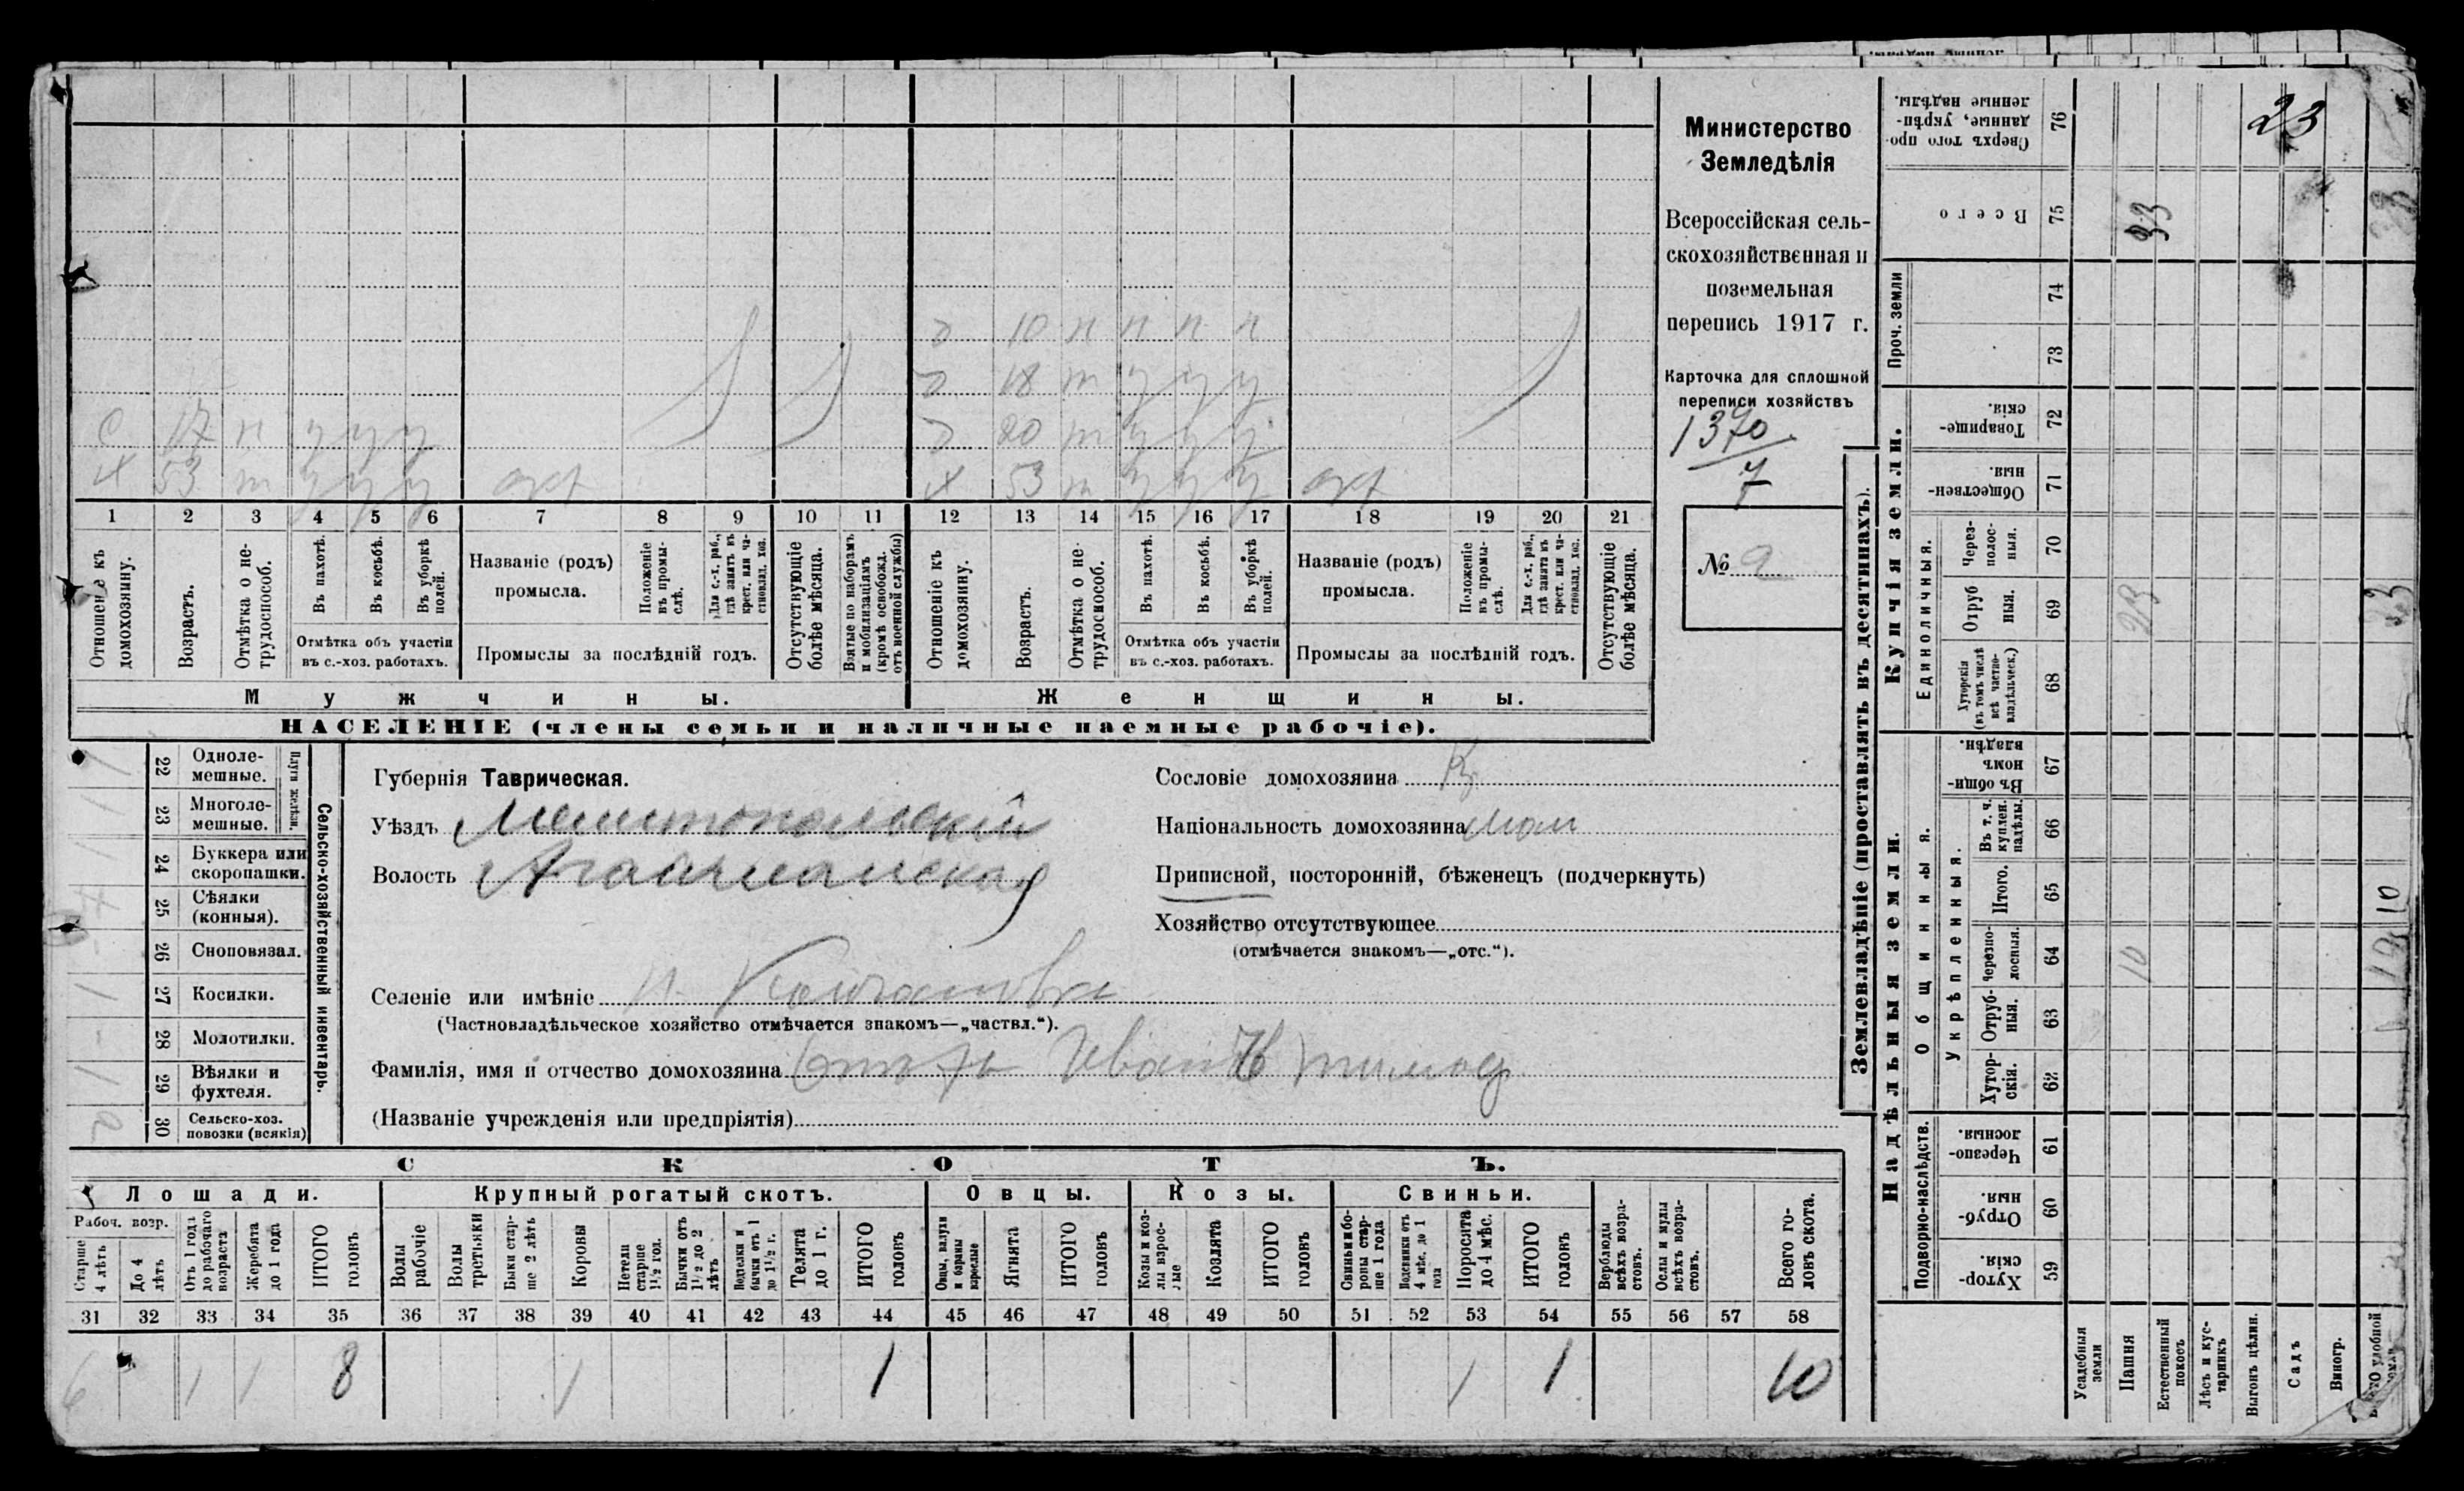 Министерство
Земледѣлія
Всероссійская сель-
скохозяйственная и
поземельная
перепись 1917 г.
Карточка для сплошной
переписи хозяйствъ
1370
№ 9
д 10 н н н н
д 18 т у у у
с 17 н у у у
д 20 т у у у
х 53 т у у у
х 53 т у у у
1 2 3 4 5 6 7 8 9 10 11 12 13 14 15 16 17 18 19 20 21
Отношеніе къ домохозяину.
Возрастъ.
Отмѣтка о не-трудоспособ.
Въ пахотѣ.
Въ косьбѣ.
Въ уборкѣ полей.
Отмѣтка объ участіи
въ с.-хоз. работахъ.
Названіе (родъ)
промысла.
Положеніе въ промы-слѣ.
Для с.-х. раб., гдѣ занятъ въ крест. или ча-стновлад. хоз.
Промыслы за послѣдній годъ.
Отсутствующіе болѣе мѣсяца.
Взятые по наборамъ и мобилизаціямъ (кромѣ освобожд. отъ военной службы)
Отношеніе къ домохозяину.
Возрастъ.
Отмѣтка о не-трудоспособ.
Въ пахотѣ.
Въ косьбѣ.
Въ уборкѣ полей.
Отмѣтка объ участіи
въ с.-хоз. работахъ.
Названіе (родъ)
промысла.
Положеніе въ промы-слѣ.
Для с.-х. раб., гдѣ занята въ крест. или ча-стновлад. хоз.
Промыслы за послѣдній годъ.
Отсутствующіе болѣе мѣсяца.
Мужчины.
Женщины.
НАСЕЛЕНІЕ (члены семьи и наличные наемные рабочіе).
Сельско-хозяйственный инвентарь.
Плуги желѣзн.
22 Одноле-мешные.
23 Многоле-мешные.
24 Буккера или скоропашки.
25 Сѣялки (конныя).
26 Сноповязал.
27 Косилки.
28 Молотилки.
29 Вѣялки и фухтеля.
30 Сельско-хоз. повозки (всякія)
Губернія Таврическая.
Уѣздъ Мелитопольскій
Волость Агайманская
Селеніе или имѣніе
(Частновладѣльческое хозяйство отмѣчается знакомъ—„частвл.“).
Фамилія, имя и отчество домохозяина Иван
(Названіе учрежденія или предпріятія)
Сословіе домохозяина Кр
Національность домохозяина мал
Приписной, посторонній, бѣженецъ (подчеркнуть)
Хозяйство отсутствующее
(отмѣчается знакомъ—„отс.“).
СКОТЪ.
Лошади.
Крупный рогатый скотъ.
Овцы.
Козы.
Свиньи.
Рабоч. возр.
Старше 4 лѣтъ
До 4 лѣтъ
Отъ 1 года до рабочаго возраста
Жеребята до 1 года
ИТОГО головъ
Волы рабочіе
Волы третьяки
Быки стар-ше 2 лѣтъ
Коровы
Нетели старше 1½ год.
Бычки отъ 1½ до 2 лѣтъ
Подтелки и бычки отъ 1 до 1½ г.
Телята до 1 г.
ИТОГО головъ
Овцы, валухи и бараны взрослые
Ягнята
ИТОГО головъ
Козы и коз-лы взрос-лые
Козлята
ИТОГО головъ
Свиньи и бо-ровы стар-ше 1 года
Подсвинки отъ 4 мѣс. до 1 года
Поросята до 4 мѣс.
ИТОГО головъ
Верблюды всѣхъ возра-стовъ.
Ослы и мулы всѣхъ возра-стовъ.
Всего го-ловъ скота.
31 32 33 34 35 36 37 38 39 40 41 42 43 44 45 46 47 48 49 50 51 52 53 54 55 56 57 58
6 1 1 8 1 1 1 1 10
Землевладѣніе (проставлять въ десятинахъ).
Надѣльныя земли.
Купчія земли.
Проч. земли
Подворно-наслѣдств.
Общинныя.
Укрѣпленныя.
Единоличныя.
59 Хутор-скія.
60 Отруб-ныя.
61 Черезпо-лосныя.
62 Хутор-скія.
63 Отруб-ныя.
64 Черезпо-лосныя.
65 Итого.
66 Въ т. ч. куплен. надѣлы.
67 Въ общин-номъ владѣн.
68 Хуторскія (въ томъ числѣ всѣ частно-владѣльческ.)
69 Отруб ныя.
70 Через-полос-ныя.
71 Обществен-ныя.
72 Товарище-скія.
73
74
75 Всего
76 Сверхъ того про-данные, укрѣп-ленные надѣлы.
Усадебныя земли
Пашня
Естественный покосъ
Лѣсъ и кус-тарникъ
Выгонъ цѣлин.
Садъ
Виногр.
10
23
33
23
10
23
33